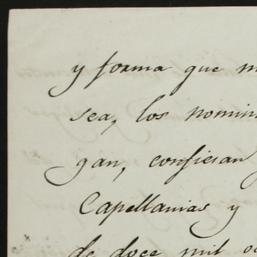 y forma que m
sea, los nomin
gan, confieran
Capellanias y
de doce mil oc